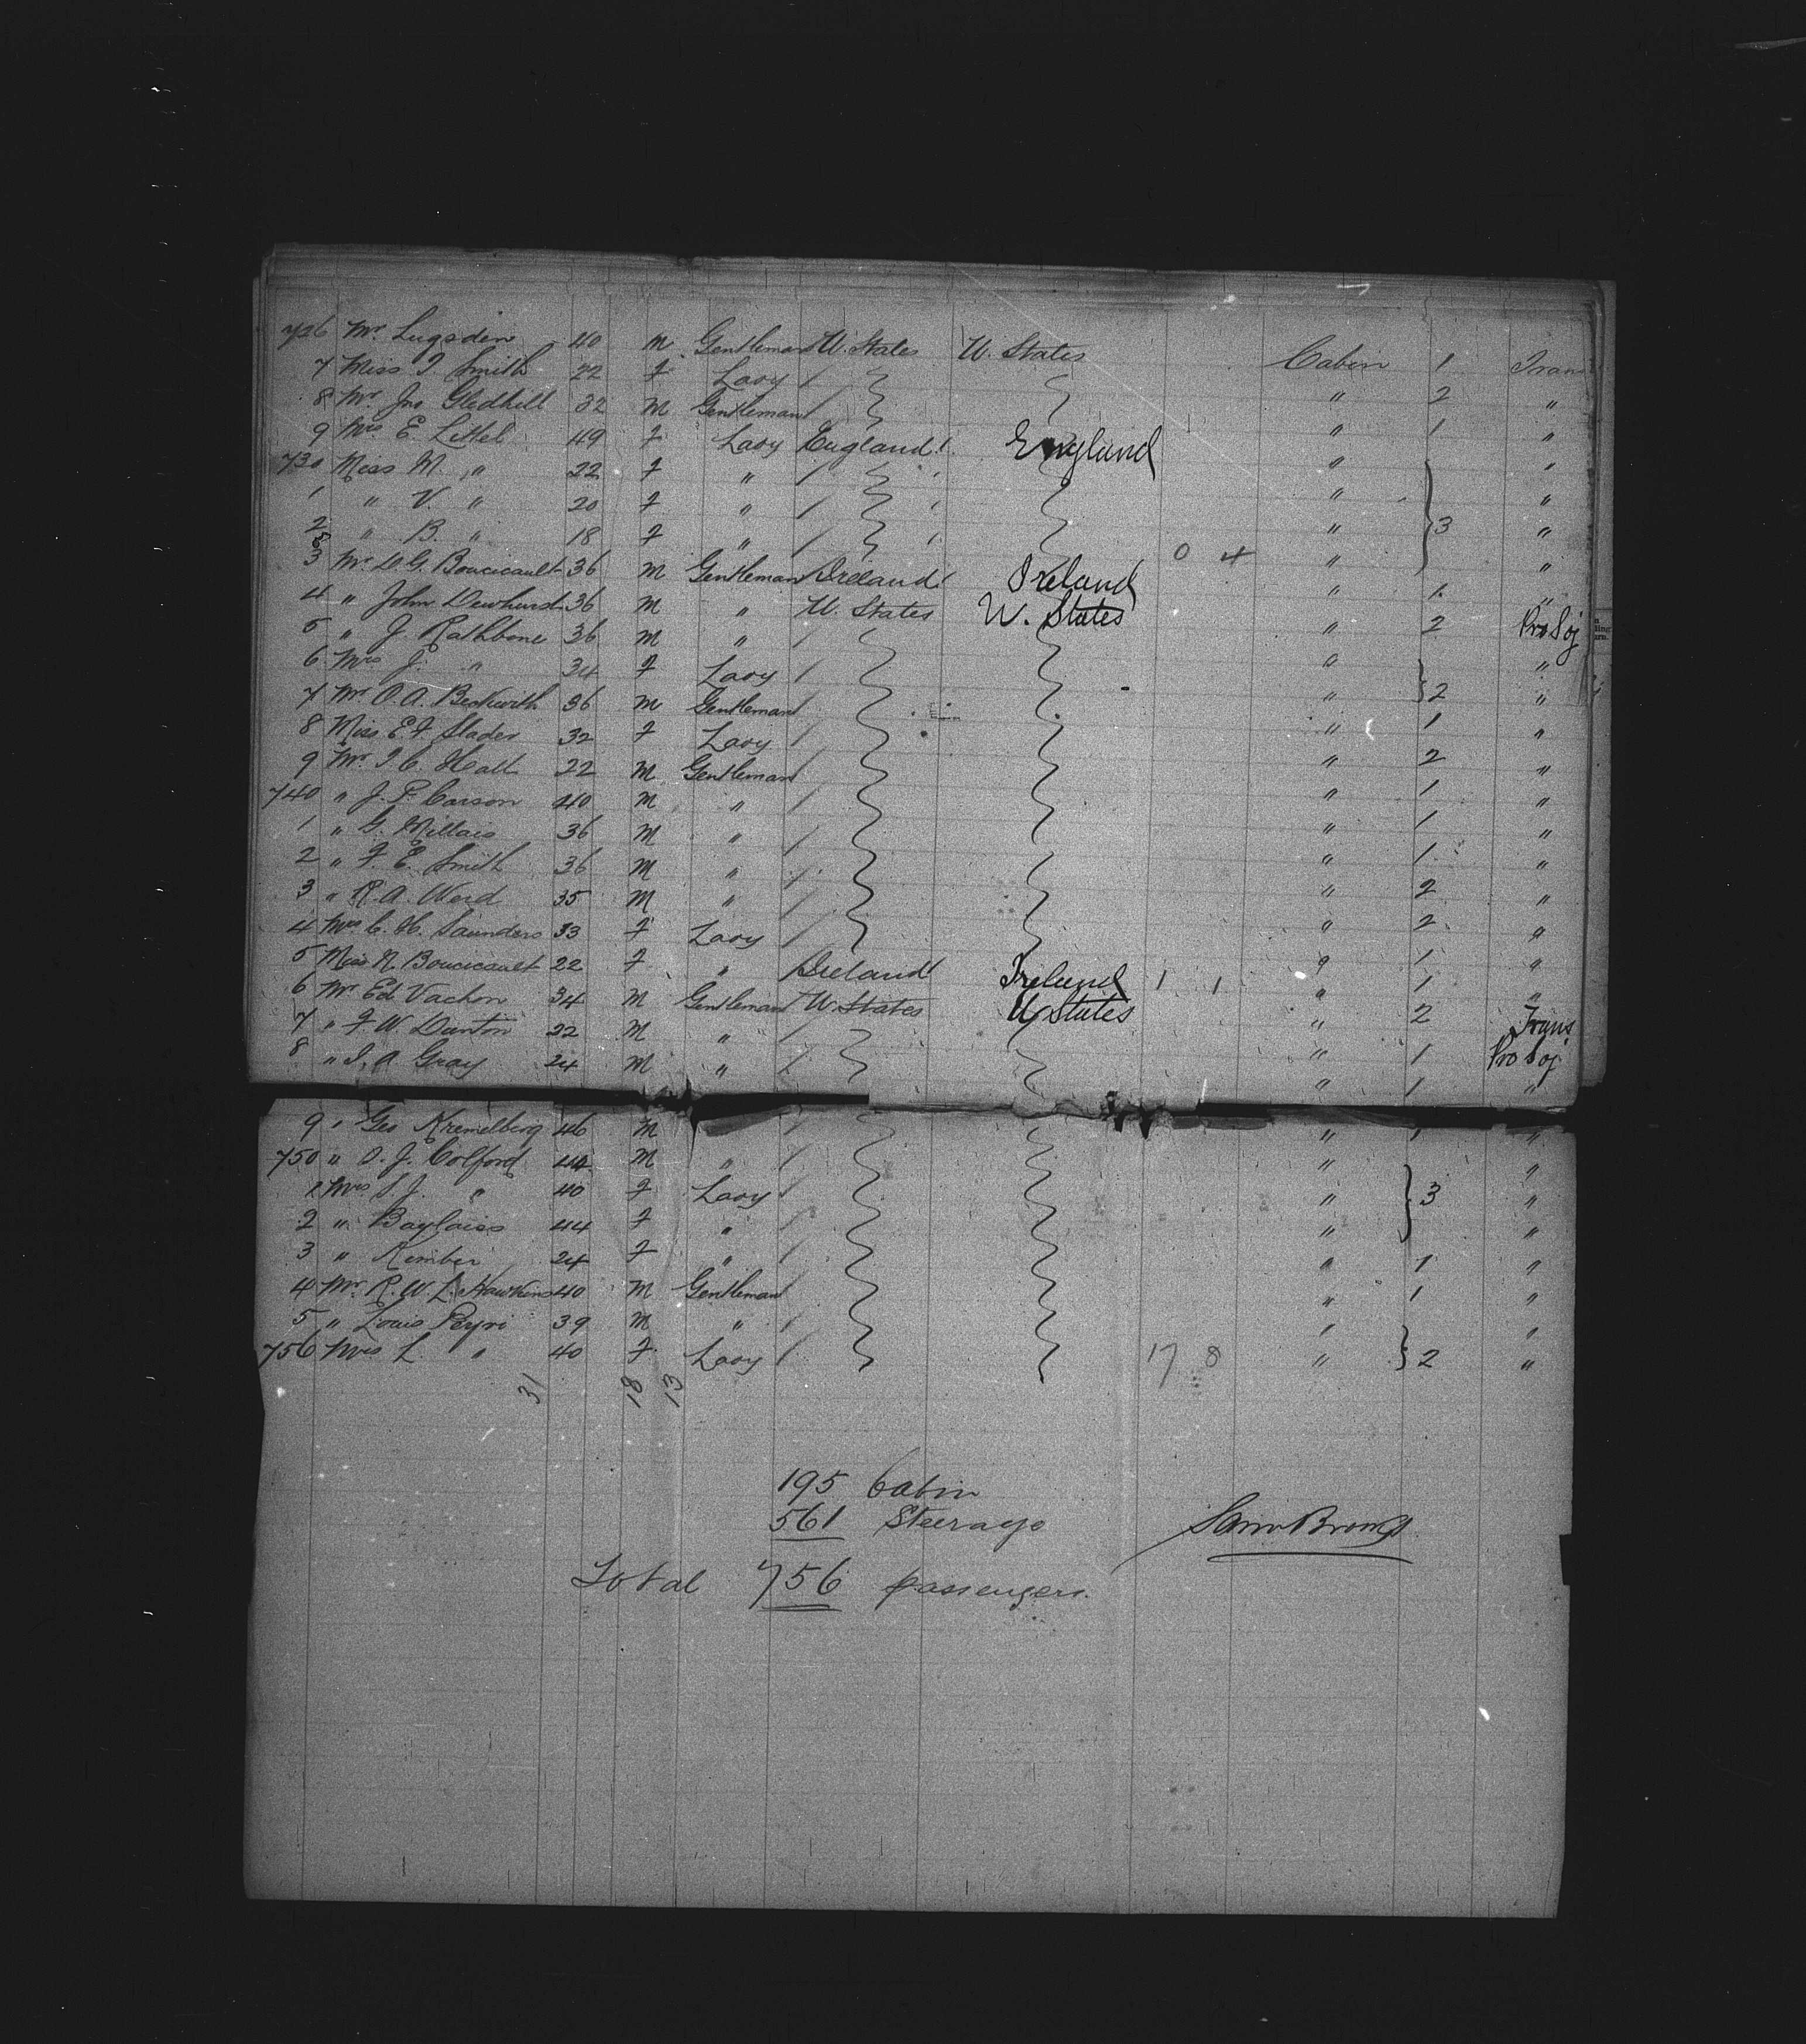 726 Mr. Lugsden 40 M Gentleman U. States U. States Cabin 1 Trans
7 Miss I Smith 22 F Lady " 2 "
8 Mr. Jno Gledhill 32 M Gentleman " 1 "
9 Mrs E. Littel 49 F Lady England England " "
730 Miss M. " 22 F " " "
1 " V. " 20 F " " 3 "
2 " B. " 18 F " 0 4 " "
3 Mr D G. Boucicault 36 M Gentleman Ireland Ireland " 1 "
4 " John Dewhurst 36 M " U. States U. States " 2 Pro Soj
5 " J. Rathbone 36 M " " "
6 Mrs J. " 34 F Lady " 2 "
7 Mr. O. A. Beckwith 36 M Gentleman " 1 "
8 Miss E F Slader 32 F Lady " 2 "
9 Mr. I. C. Hall 22 M Gentleman " 1 "
740 " J. P. Carson 40 M " " 1 "
1 " G. Millais 36 M " " 1 "
2 " F. E. Smith 36 M " " 2 "
3 " R. A. 35 M " " 2 "
4 Mrs C. H. Saunders 33 F Lady " 1 "
5 Miss N. Boucicault 22 F " Ireland Ireland 1 1 " 1 "
6 Mr Ed Vachon 34 M Gentleman U. States U States " 2 Trans
7 " F W. Danton 22 M " " 1 Pro Soj
8 " I. A Gray 24 M " " 1 "
9 " Geo Kremelberg 46 M " 1 "
750 " S. J. Colford 44 M " " "
1 Mrs S. J. " 40 F Lady " 3 "
2 " Baylaiss 44 F " " "
3 " Kimber 24 F " " 1 "
4 Mr. R. W. L. Hawkins 40 M Gentleman " 1 "
5 " Louis Peyri 39 M " " "
756 Mrs L. " 40 F Lady 17 8 " 2 "
31 18 13
195 Cabin
561 Steerage
Total 756 passengers.